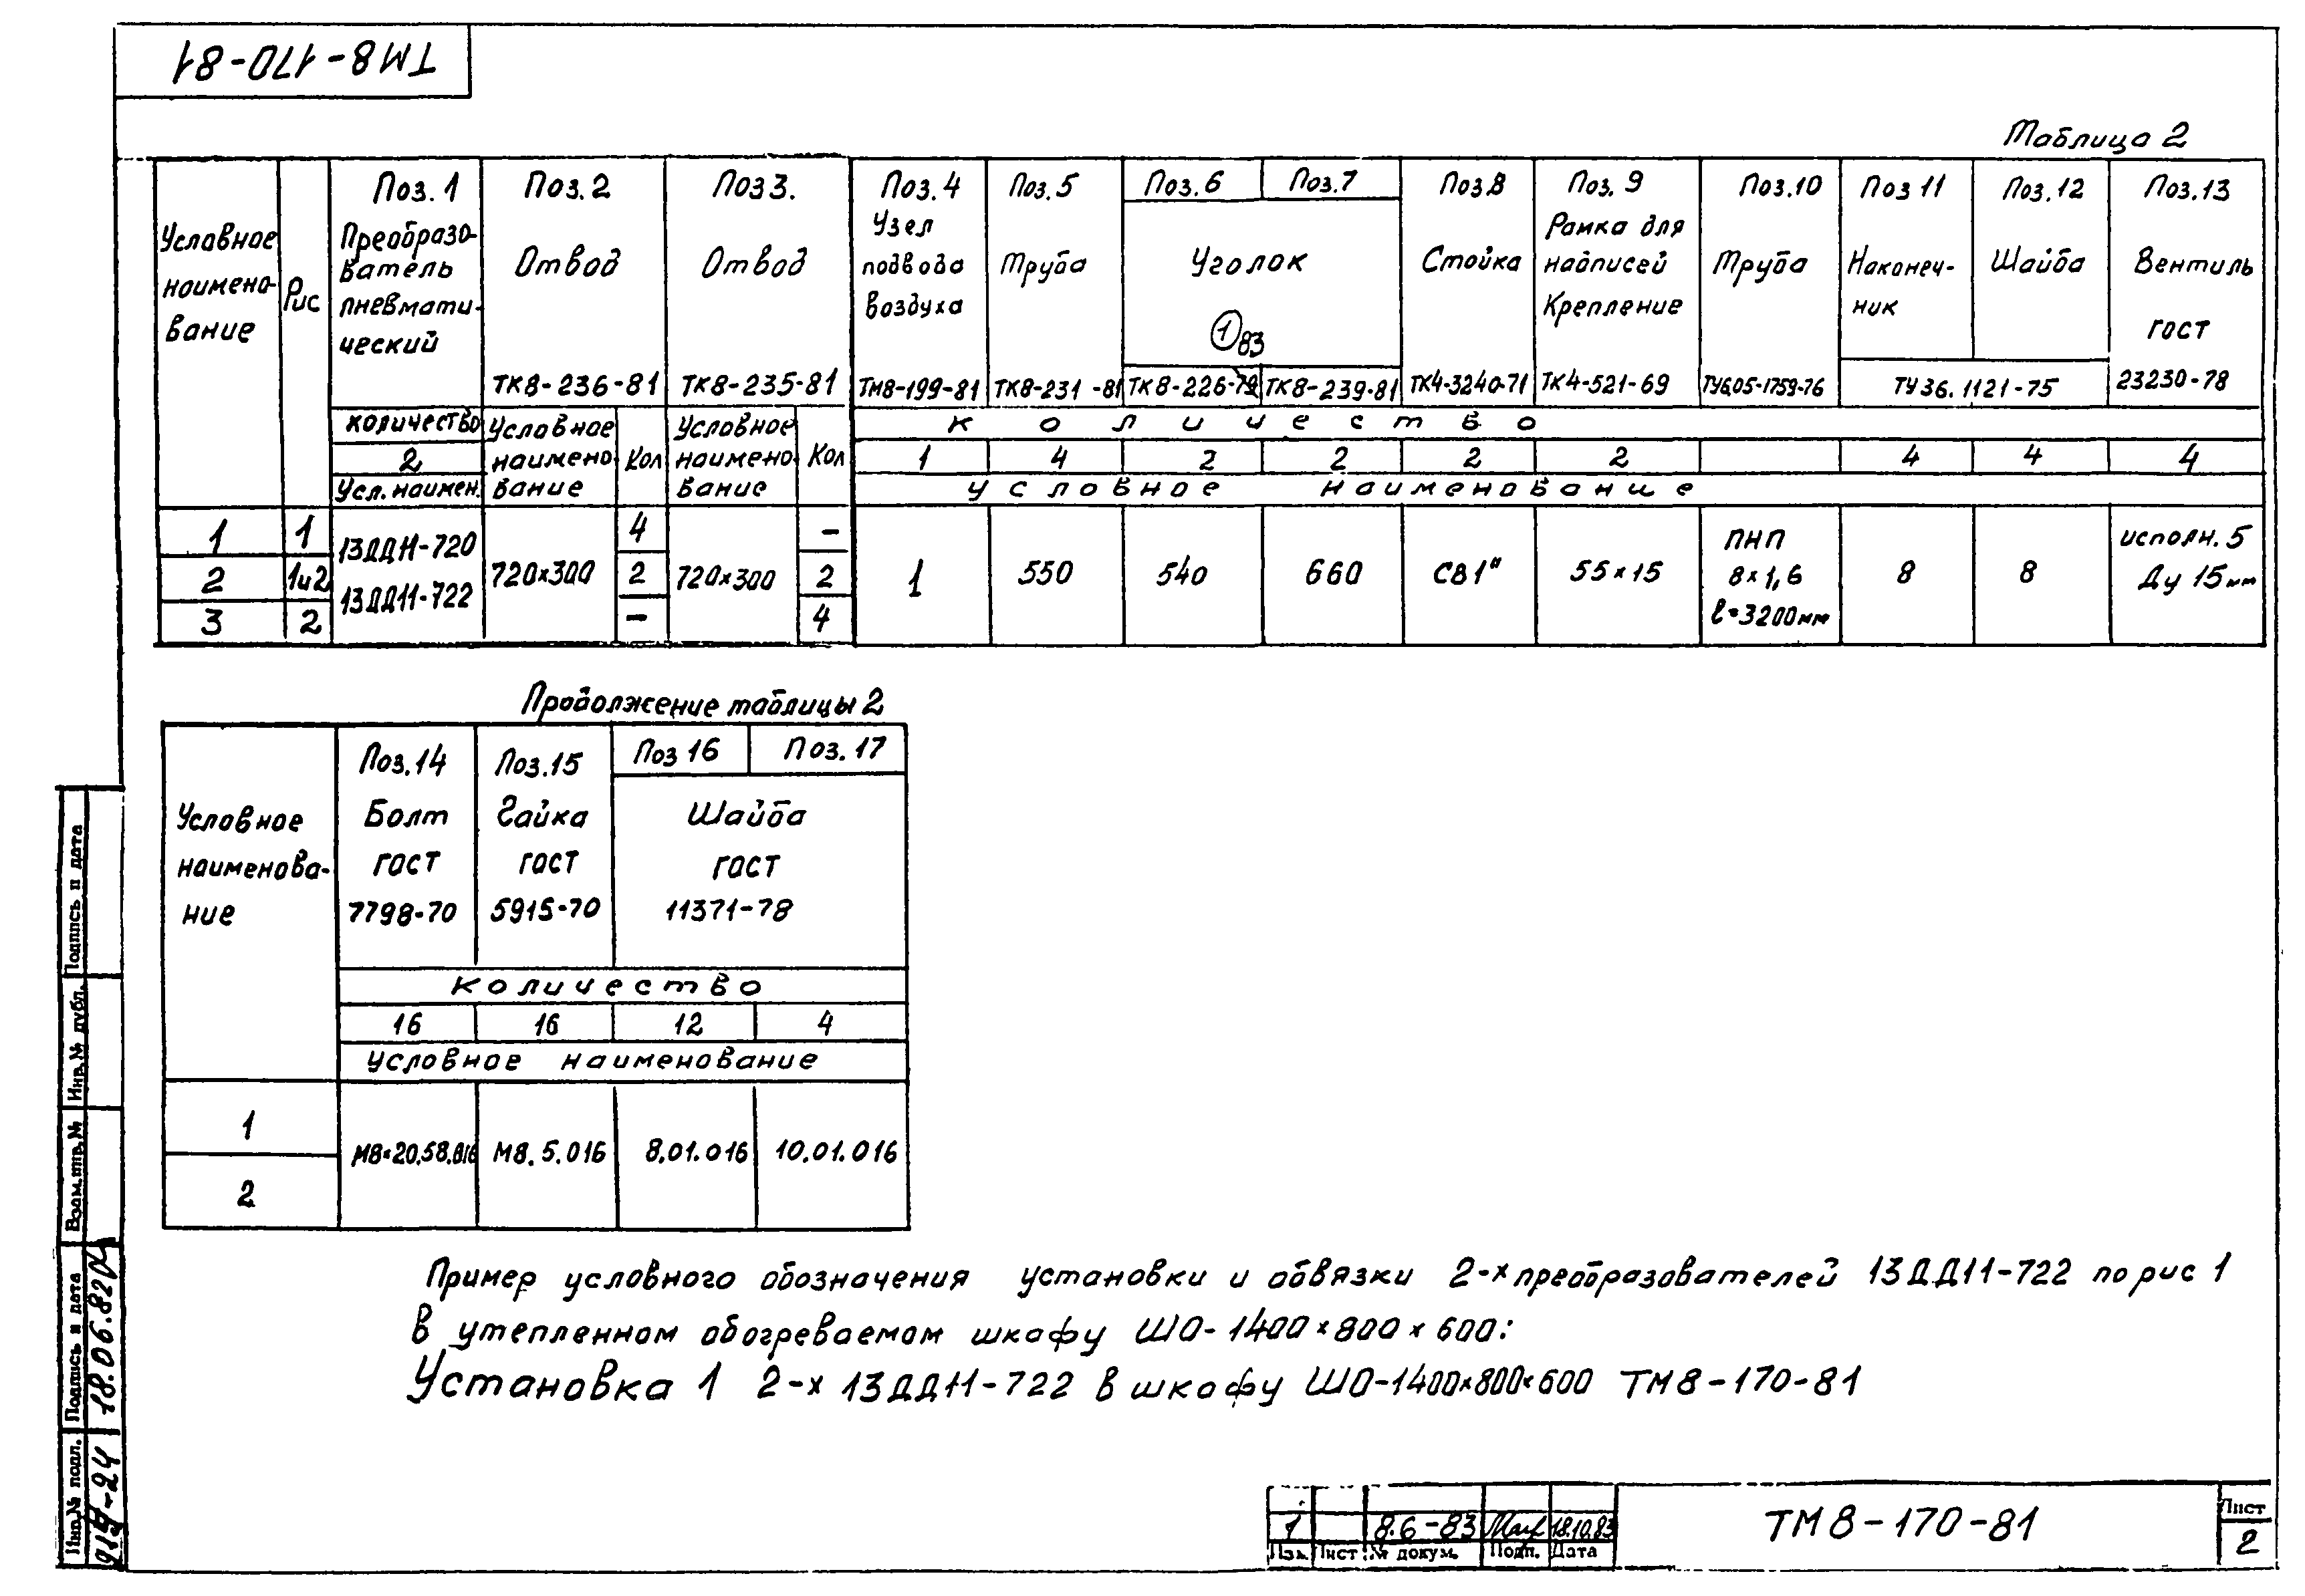 ТМ8-170-81
Таблица 2
Условное наимено-вание
Рис
Поз. 1
Преобразо-ватель пневмати-ческий
количество
2
Усл. наимен.
Поз. 2
Отвод
ТК8-236-81
Условное наимено вание
Кол
Поз 3.
Отвод
ТК8-235-81
Условное наимено вание
Кол
Поз. 4
Узел подвода воздуха
ТМ8-199-81
Поз. 5
Труба
ТК8-231-81
Поз. 6
Поз. 7
Уголок
1 83
ТК8-226-79
ТК8-239-81
Поз 8
Стойка
ТК4-3240-71
Поз. 9
Рамка для надписей Крепление
ТК4-521-69
Поз. 10
Труба
ТУ6.05-1759-76
Поз 11
Наконеч-ник
Поз. 12
Шайба
ТУ 36. 1121-75
Поз. 13
Вентиль
гост
23230-78
количество
1 4 2 2 2 2 4 4 4
условное наименование
1 1 13ДД11-720 720×300 4 720×300 -
2 1и2 2 2
3 2 13ДД11-722 - 4
1 550 540 660 СВ1" 55×15 ПНП 8×1,6 ℓ=3200мм 8 8 исполн. 5 Ду 15мм
Продолжение таблицы 2
Условное наименова-ние
Поз. 14
Болт
гост
7798-70
Поз. 15
Гайка
гост
5915-70
Поз 16
Поз. 17
Шайба
гост
11371-78
количество
16 16 12 4
условное наименование
1
2
М8×20.58.016 М8. 5.016 8.01.016 10.01.016
Пример условного обозначения установки и обвязки 2-х преобразователей 13ДД11-722 по рис 1
в утепленном обогреваемом шкафу ШО-1400×800×600:
Установка 1 2-х 13ДД11-722 в шкафу ШО-1400×800×600 ТМ8-170-81
Подпись и дата
Инв.№ дубл.
Взам.инв.№
Подпись и дата
18.06.82
Инв.№ подл.
1 8.6-83 18.10.83
Изм. Лист № докум. Подп. Дата
ТМ8-170-81
Лист
2